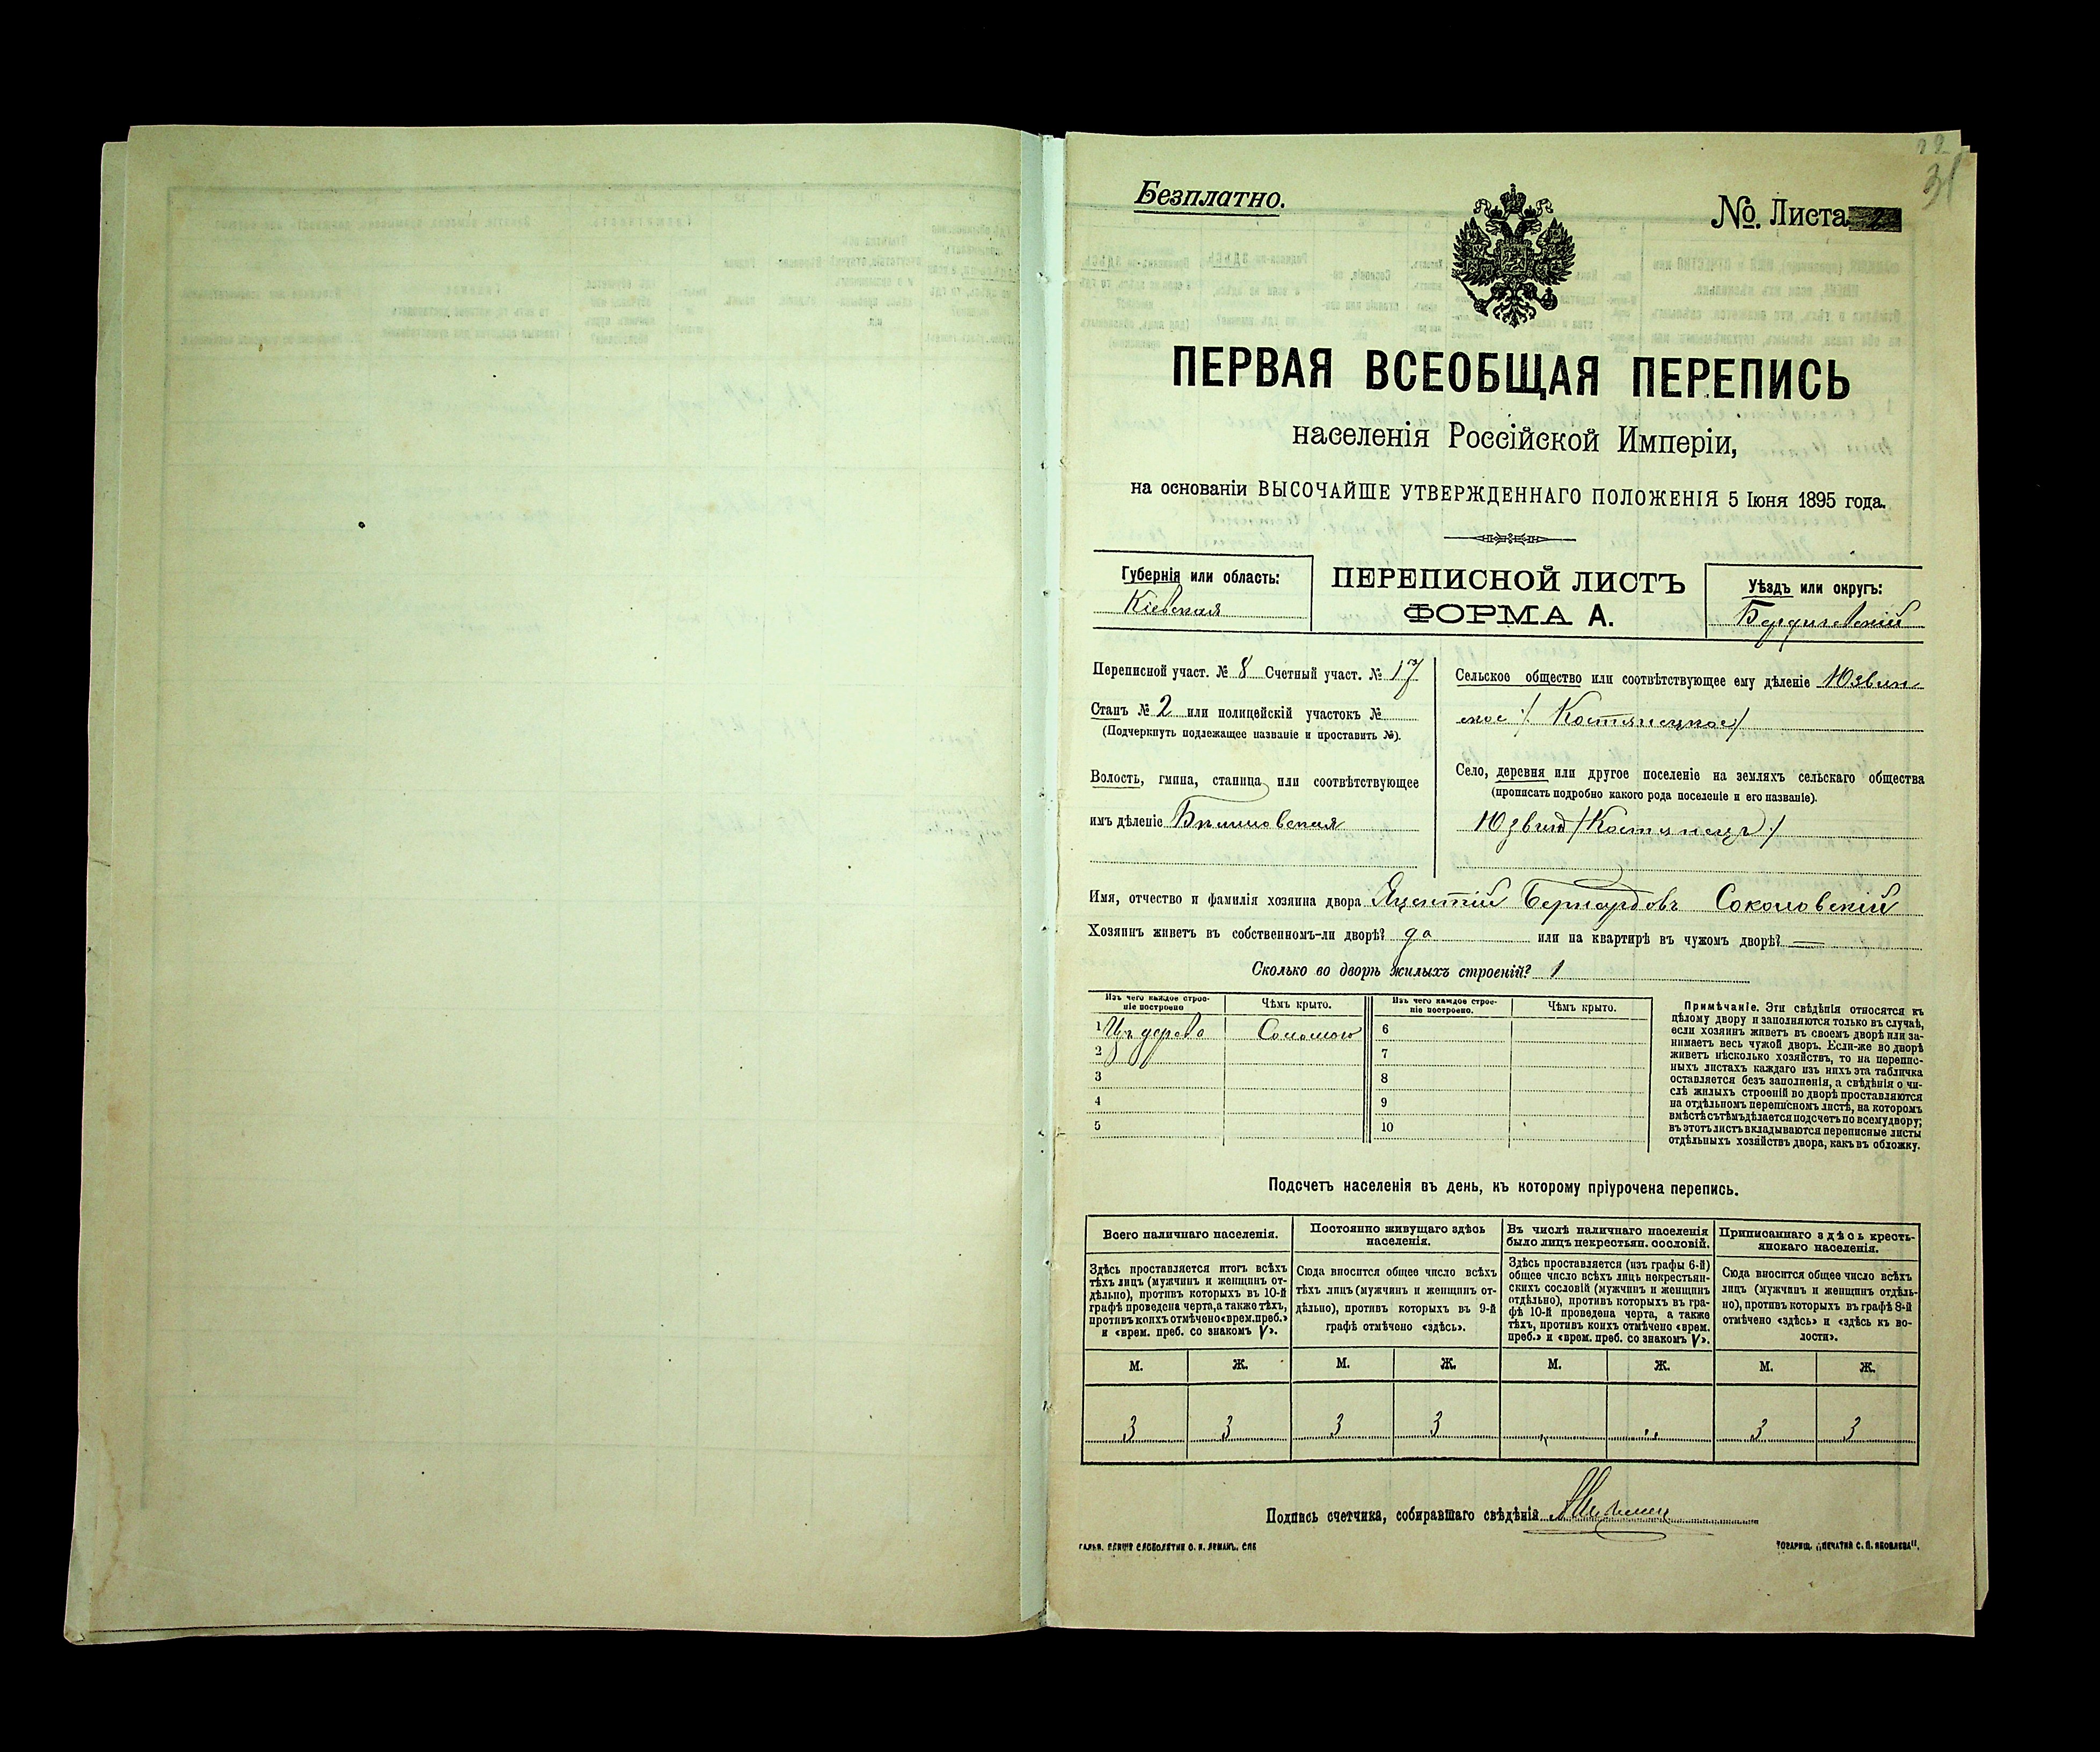 31
Безплатно.
№. Листа 2
ПЕРВАЯ ВСЕОБЩАЯ ПЕРЕПИСЬ
населенія Россійской Имперіи,
на основаніи ВЫСОЧАЙШЕ УТВЕРЖДЕННАГО ПОЛОЖЕНІЯ 5 Іюня 1895 года.
Губернія или область:
Кіевская
ПЕРЕПИСНОЙ ЛИСТЪ
ФОРМА А.
Уѣздъ или округъ:
Бердичевскій
Переписной участ. № 8 Счетный участ. № 17
Станъ № 2 или полицейскій участокъ №
(Подчеркнуть подлежащее названіе и проставить №).
Волость, гмина, станица или соотвѣтствующее
имъ дѣленіе
Сельское общество или соотвѣтствующее ему дѣленіе Юзвин
ское /Костянецкое/
Село, деревня или другое поселеніе на земляхъ сельскаго общества
(прописать подробно какого рода поселеніе и его названіе).
Юзвин /Костянецъ/
Имя, отчество и фамилія хозяина двора Яцентій Бернардовъ Соколовскій
Хозяинъ живетъ въ собственномъ-ли дворѣ? да или на квартирѣ въ чужомъ дворѣ? —
Сколько во дворѣ жилыхъ строеній? 1
Изъ чего каждое строе-
ніе построено
Чѣмъ крыто.
Изъ чего каждое строе-
ніе построено.
Чѣмъ крыто.
1 Изъ дерева Соломою 6
2 7
3 8
4 9
5 10
Примѣчаніе. Эти свѣдѣнія относятся къ
цѣлому двору и заполняются только въ случаѣ,
если хозяинъ живетъ въ своемъ дворѣ или за-
нимаетъ весь чужой дворъ. Если-же во дворѣ
живетъ нѣсколько хозяйствъ, то на перепис-
ныхъ листахъ каждаго изъ нихъ эта табличка
оставляется безъ заполненія, а свѣдѣнія о чи-
слѣ жилыхъ строеній во дворѣ проставляются
на отдѣльномъ переписномъ листѣ, на которомъ
вмѣстѣ съ тѣмъ дѣлается подсчетъ по всему двору;
въ этотъ листъ вкладываются переписные листы
отдѣльныхъ хозяйствъ двора, какъ въ обложку.
Подсчетъ населенія въ день, къ которому пріурочена перепись.
Всего наличнаго населенія.
Здѣсь проставляется итогъ всѣхъ
тѣхъ лицъ (мужчинъ и женщинъ от-
дѣльно), противъ которыхъ въ 10-й
графѣ проведена черта, а также тѣхъ,
противъ коихъ отмѣчено «врем. преб.»
и «врем. преб. со знакомъ V».
Постоянно живущаго здѣсь
населенія.
Сюда вносится общее число всѣхъ
тѣхъ лицъ (мужчинъ и женщинъ от-
дѣльно), противъ которыхъ въ 9-й
графѣ отмѣчено «здѣсь».
Въ числѣ наличнаго населенія
было лицъ некрестьян. сословій.
Здѣсь проставляется (изъ графы 6-й)
общее число всѣхъ лицъ некрестьян-
скихъ сословій (мужчинъ и женщинъ
отдѣльно), противъ которыхъ въ гра-
фѣ 10-й проведена черта, а также
тѣхъ, противъ коихъ отмѣчено «врем.
преб.» и «врем. преб. со знакомъ V».
Приписаннаго здѣсь кресть-
янскаго населенія.
Сюда вносится общее число всѣхъ
лицъ (мужчинъ и женщинъ отдѣль-
но), противъ которыхъ въ графѣ 8-й
отмѣчено «здѣсь» и «здѣсь къ во-
лости».
М. Ж. М. Ж. М. Ж. М. Ж.
3 3 3 3 „ „ 3 3
Подпись счетчика, собиравшаго свѣдѣнія
ТОВАРИЩ. „ПЕЧАТНЯ С. П. ЯКОВЛЕВА“.